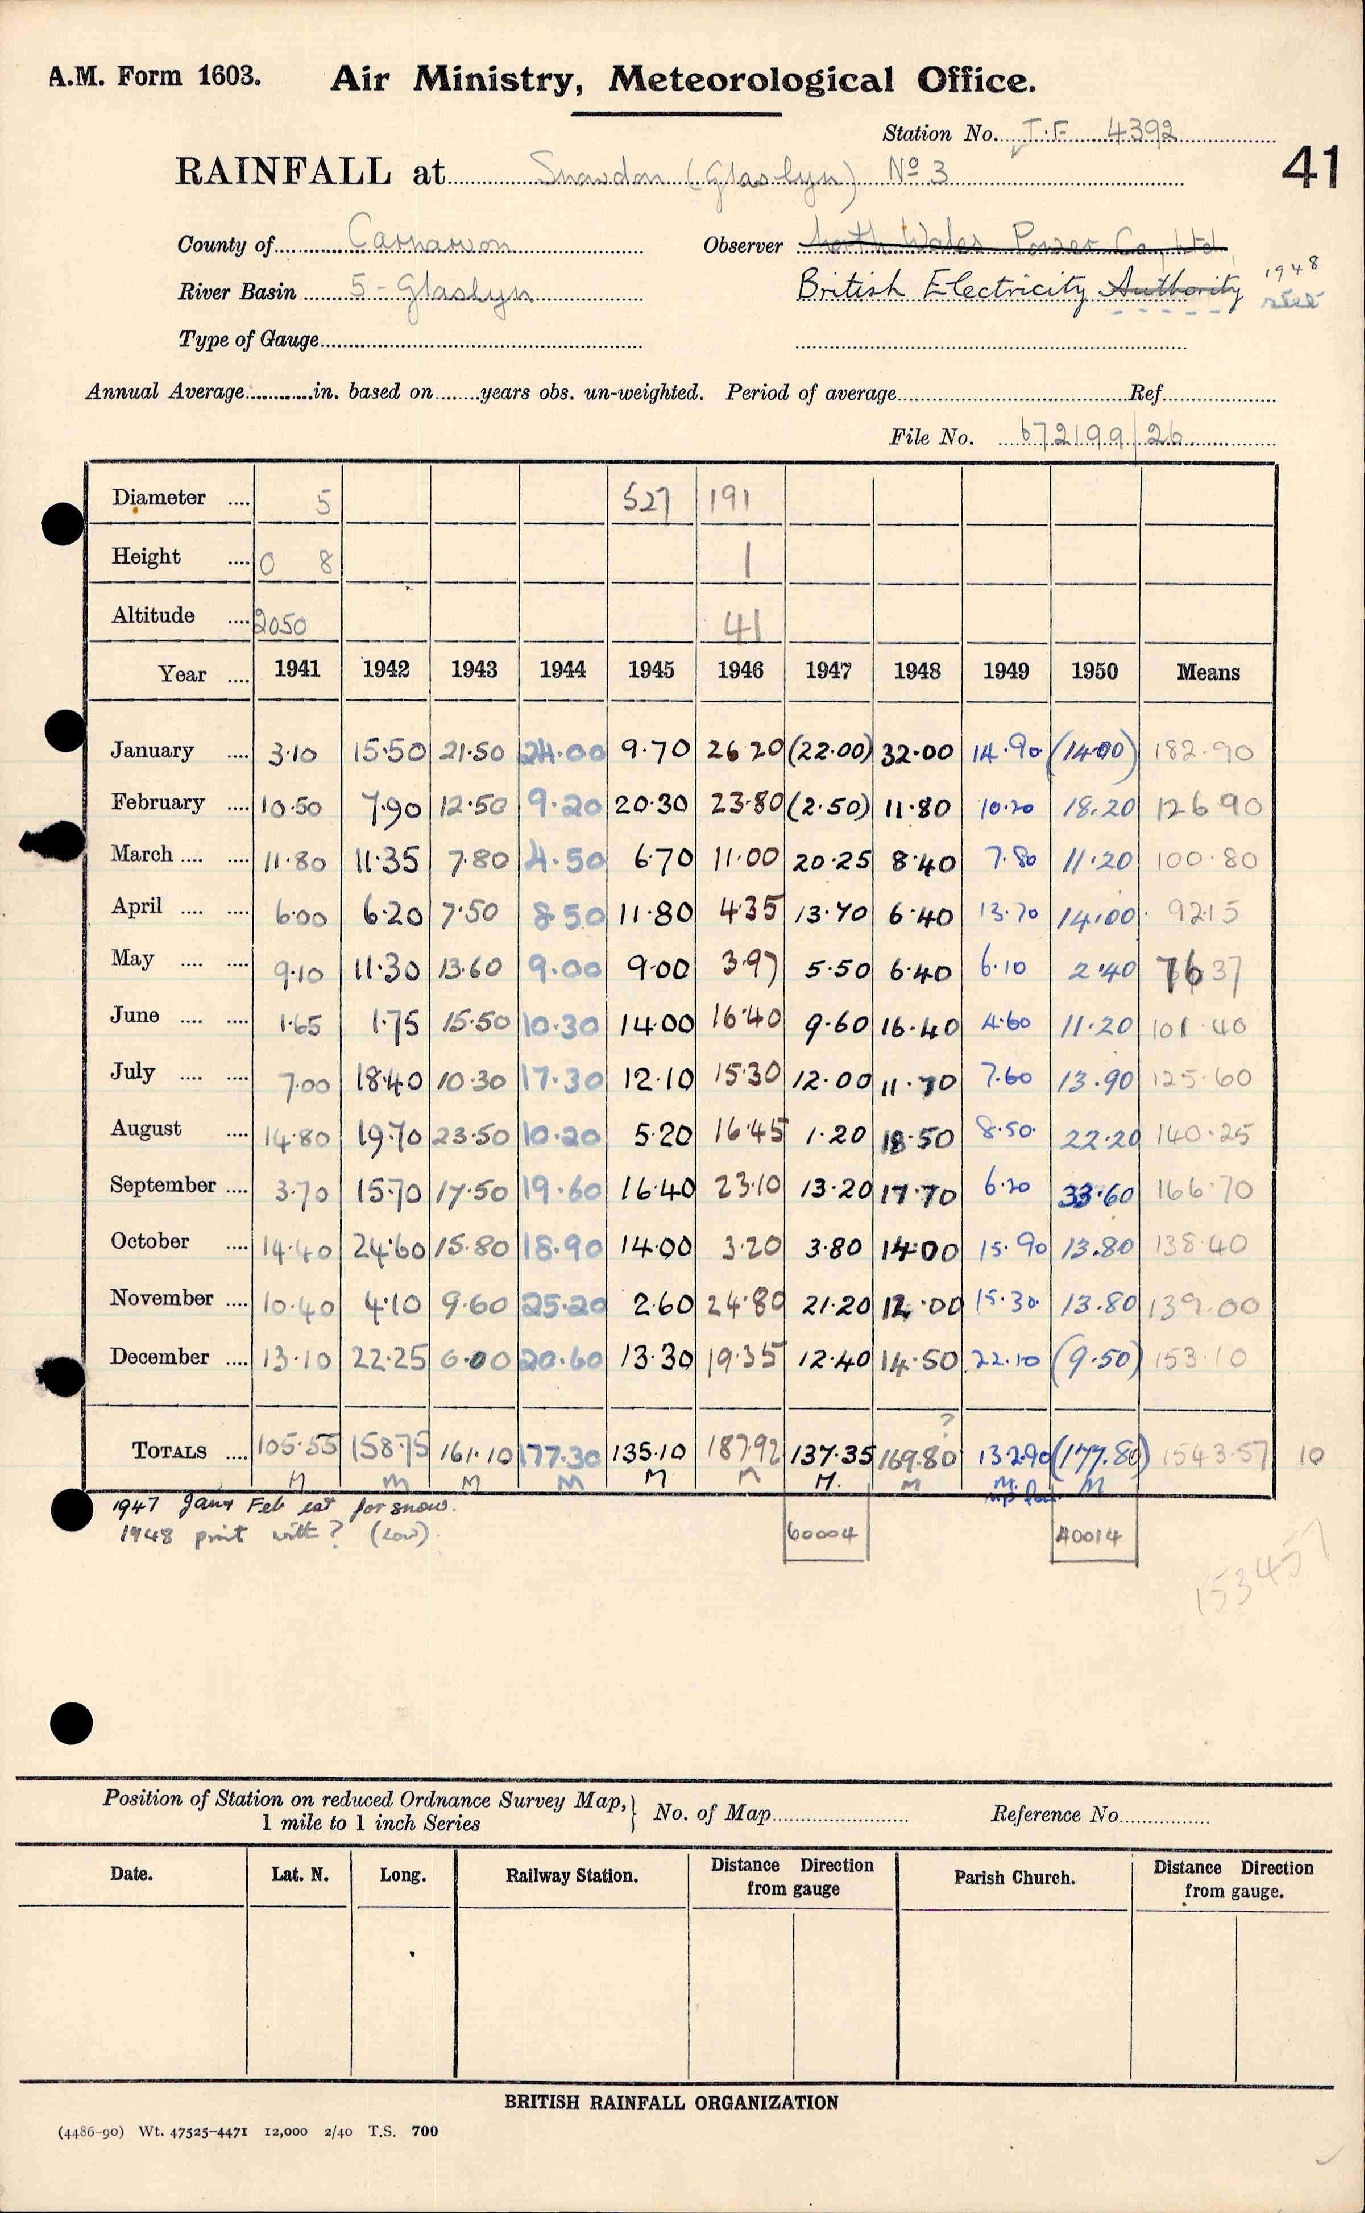 A.M. Form 1603. Air Ministry, Meteorological Office.
Station No. T.F 4392
RAINFALL at Snowdon (Glaslyn) No 3 41
County of Carnarvon Observer North Wales Power Co, Ltd,
River Basin 5 - Glaslyn British Electricity Authority 1948
Type of Gauge
Annual Average in. based on years obs. un-weighted. Period of average Ref
File No. 672199/26
Diameter .... 5 527 191
Height .... 0 8 1
Altitude .... 2050 41
Year .... 1941 1942 1943 1944 1945 1946 1947 1948 1949 1950 Means
January .... 3.10 15.50 21.50 24.00 9.70 26.20 (22.00) 32.00 14.90 (14.00) 182.90
February .... 10.50 7.90 12.50 9.20 20.30 23.80 (2.50) 11.80 10.20 18.20 126.90
March .... .... 11.80 11.35 7.80 4.50 6.70 11.00 20.25 8.40 7.80 11.20 100.80
April .... .... 6.00 6.20 7.50 8.50 11.80 4.35 13.70 6.40 13.70 14.00 92.15
May .... .... 9.10 11.30 13.60 9.00 9.00 3.97 5.50 6.40 6.10 2.40 76.37
June .... .... 1.65 1.75 15.50 10.30 14.00 16.40 9.60 16.40 4.60 11.20 101.40
July .... .... 7.00 18.40 10.30 17.30 12.10 15.30 12.00 11.70 7.60 13.90 125.60
August .... 14.80 19.70 23.50 10.20 5.20 16.45 1.20 18.50 8.50 22.20 140.25
September .... 3.70 15.70 17.50 19.60 16.40 23.10 13.20 17.70 6.20 33.60 166.70
October .... 14.40 24.60 15.80 18.90 14.00 3.20 3.80 14.00 15.90 13.80 138.40
November .... 10.40 4.10 9.60 25.20 2.60 24.80 21.20 12.00 15.30 13.80 139.00
December .... 13.10 22.25 6.00 20.60 13.30 19.35 12.40 14.50 22.10 (9.50) 153.10
?
TOTALS .... 105.55 158.75 161.10 177.30 135.10 187.92 137.35 169.80 132.90 (177.80) 1543.57 10
M M M M M M M. M M. M
1947 Jan & Feb est for snow.
1948 print with ? (low). 60004 40014
153457
Position of Station on reduced Ordnance Survey Map,
1 mile to 1 inch Series } No. of Map Reference No.
Date. Lat. N. Long. Railway Station. Distance Direction from gauge Parish Church. Distance Direction from gauge.
BRITISH RAINFALL ORGANIZATION
(4486-90) Wt. 47525-4471 12,000 2/40 T.S. 700